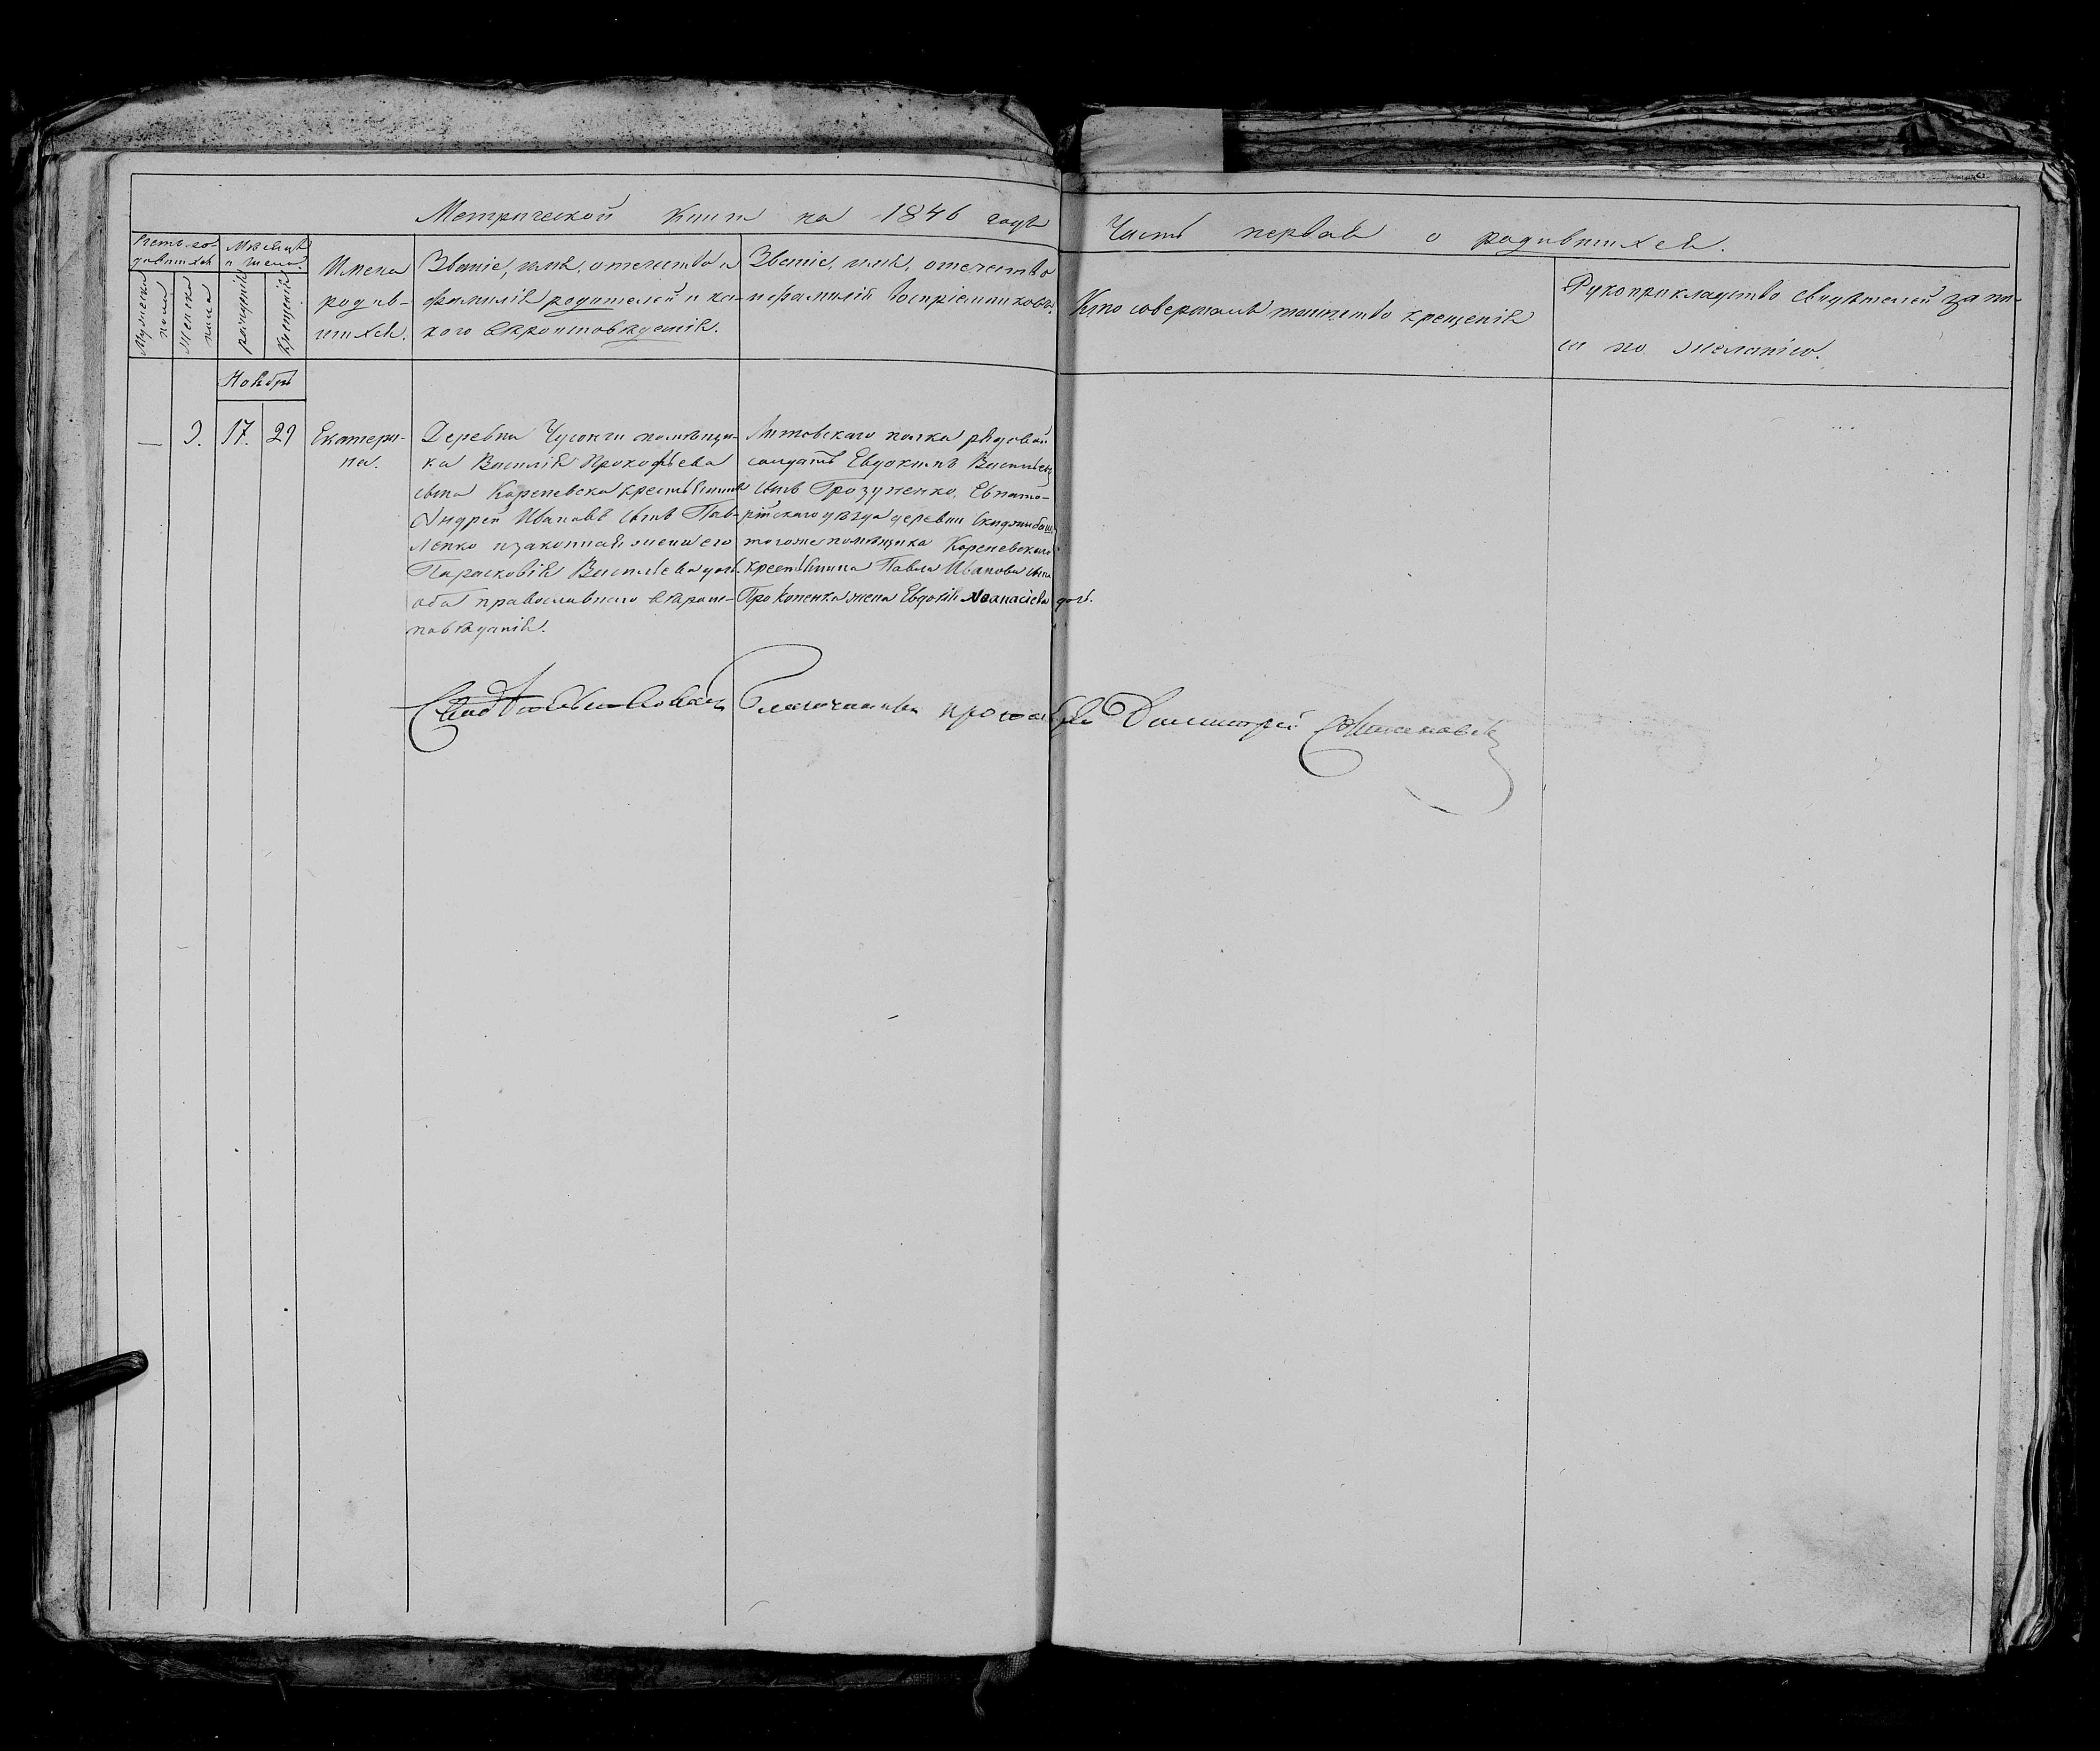 Метрической книги на 1846 годъ
Часть первая о родившихся.
Счетъ ро-
дившихся
Мужеска
пола
Женска
пола
Мѣсяцъ
и число.
рожденія
Крещенія
Имена
родив-
шихся.
Званіе, имя, отечество и
фамилія родителей и ка-
кого вѣроисповѣденія.
Званіе, имя, отечество
и фамилія воспріемниковъ.
Кто совершалъ таинство крещенія
Рукоприкладство свидѣтелей запи-
си по желанію.
Ноябрь
— 9. 17. 21
Екатери-
на.
Деревни помѣщи-
ка Василія Прокофьева
сына Кореневска крестьянинъ
Андрей Ивановъ сынъ Пав-
ленко изаконная жена его
Парасковія Васильева дочь.
оба православнаго вѣроис-
повѣданія.
Литовскаго полка рядовой
солдатъ Евдокимъ Васильевъ
сынъ Грозуненко, Евпато-
рійскаго уѣзда деревни
тогоже помѣщика Кореневскаго
крестьянина Павла Иванова сына
Прокопенка жена Евдокія Аѳанасіева дочь.
Благочинный протоіерей Димитрій